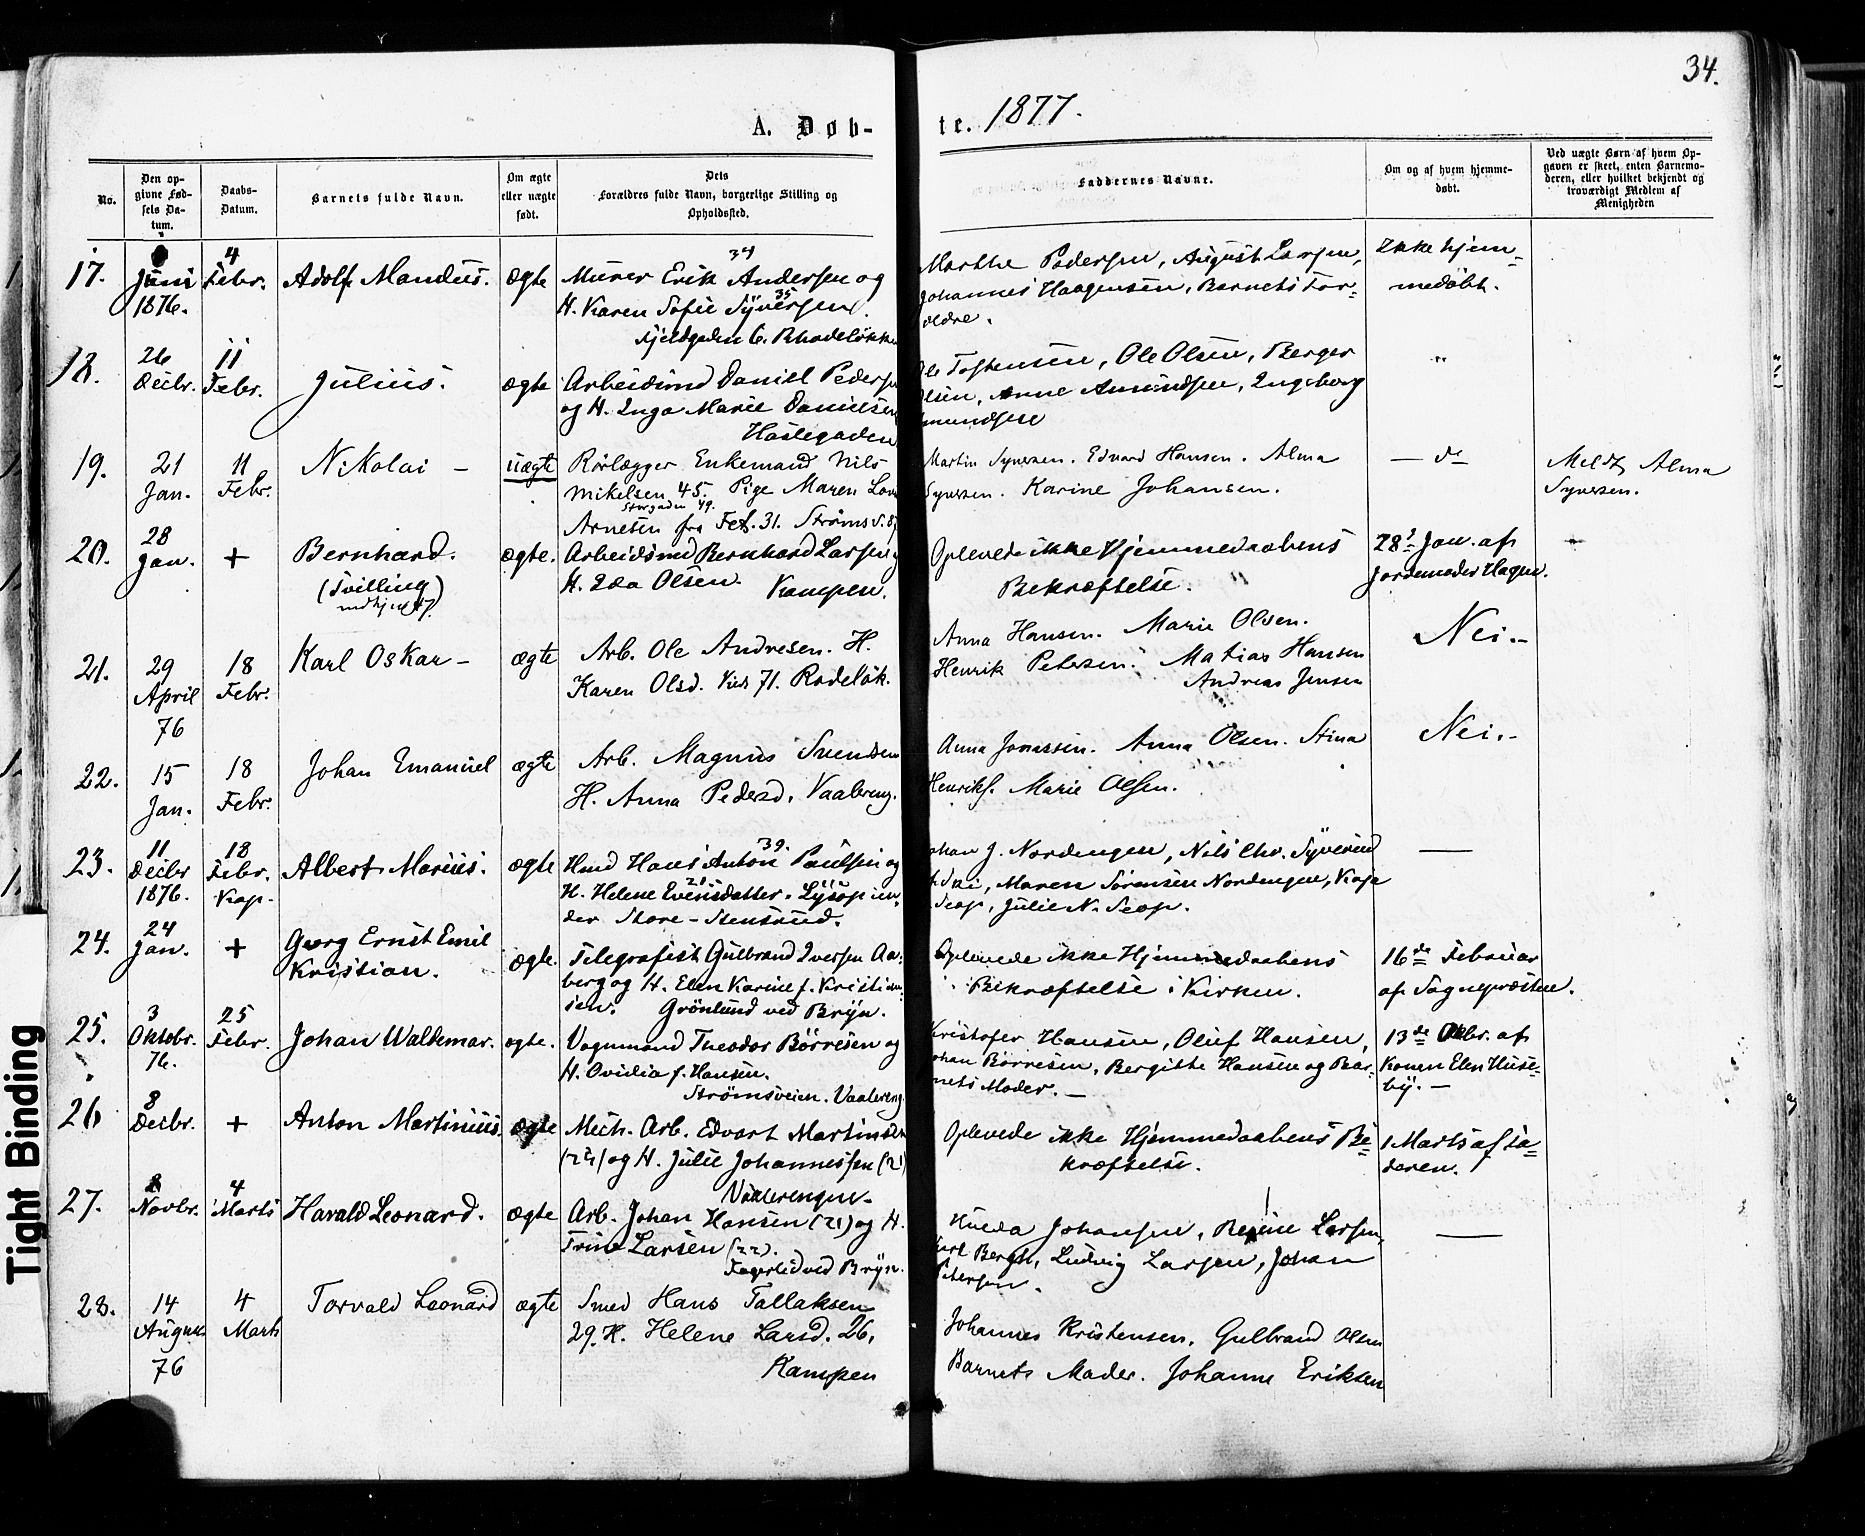 34.
A. Døb-
te. 1877.
No.
Den op-
givne Fød-
sels Da-
tum.
Daabs-
Datum.
Barnets fulde Navn.
Om ægte
eller uægte
født.
Dets
Forældres fulde Navn, borgerlige Stilling og
Opholdssted.
Faddernes Navne.
Om og af hvem hjemme-
døbt.
Ved uægte Børn af hvem Op-
gaven er skeet, enten Barnemo-
deren, eller hvilket bekjendt og
troværdigt Medlem af
Menigheden
17.
Juni
1876.
4
Febr.
Adolf Mandus.
ægte
34
Murer Erik Andersen og
35
H. Karen Sofie Syversen.
Fjeldgaden 6. Rhodeløkke
Marthe Pedersen, August Larsen,
Johannes Haagensen, Barnets For-
ældre.
Ikke hjem-
medøbt.
18.
26
Decbr.
11
Febr.
Julius.
ægte
Arbeidsmd Daniel Peders
og H. Inga Marie Danielsen
Haslegaden
Ole Tostensen, Ole Olsen, Berger
Olsen, Anne Amundsen, Ingeborg
mundsen
"
19.
21
Jan.
11
Febr.
Nikolai -
uægte
Rørlægger Enkemand Nils
Mikelsen 45. Pige Maren Lov
Storgaden 49.
Arnesen fra Fet. 31. Strøms
Martin Syversen. Edvard Hansen. Alma
Syversen. Karine Johansen.
— do
Meldt Alma
Syversen.
20.
28
Jan.
+
Bernhard.
(Tvilling)
ægte.
Arbeidsmd Bernhard Larsen
H. Ida Olsen. Kampen.
Oplevede ikke Hjemmedaabens
Bekræftelse.
28 Jan. af
Jordemoder Hagen.
21.
29
April
76
18
Febr.
Karl Oskar -
ægte
Arb. Ole Andresen. H.
Karen Olsd. 71. Rodeløk.
Anna Hansen. Marie Olsen.
Henrik Petersen. Matias Hansen
Andreas Jensen
Nei.-
22.
15
Jan.
18
Febr.
Johan Emanuel
ægte
Arb. Magnus Svendsen
H. Anna Pedersd. Vaalereng.
Anna Jonassen. Anna Olsen. Stina
Henriks. Marie Olsen.
Nei.-
23.
11
Decbr
1876.
18
Febr.
Kap.
Albert Marius.
ægte
39.
Hmd Hans Anton Paulsen og
H. Helene Evensdatter. Lysop un-
der Store-Stensrud.
Johan J. Nordengen, Nils Chr. Syverud
Maren Sørensen Nordengen, Kaja
Seop, Julie N. Seop.
—
24.
24
Jan.
+
Georg Ernst Emil
Kristian.
ægte.
Telegrafist Gulbrand Iversen Aa-
berg og H. Elen Karine f. Kristian-
sen. Grønlund ved Bryn.
Oplevede ikke Hjemmedaabens
Bekræftelse i Kirken.
16de Februar
af Sognepræsten.
25.
3
Oktobr.
76.
25
Febr.
Johan Waldemar.
ægte.
Vognmand Theodor Børresen og
H. Ovidia f. Hansen.
Strømsveien. Vaalereng.
Kristofer Hansen, Oluf Hansen,
Johan Børresen, Bergitte Hansen og Bar-
nets Moder. —
13de Oktbr. af
Konen Elen Huse-
by. —
26
8
Decbr.
+
Anton Martinius.
ægte
Mech. Arb. Edvart Martinsen
og H. Julie Johannessen
Vaalerengen.
Oplevede ikke Hjemmedaabens Be-
kræftelse.
1 Marts af Fa-
deren.
27.
8
Novbr.
4
Marts
Harald Leonard.
ægte
Arb. Johan Hansen (21) og H.
Trine Larsen (22).
Fagerlid ved Bryn.
Hulda Johansen, Regine Larsen,
Karl Bergh, Ludvig Larsen, Johan
Petersen.
—
28.
14
August
76
4
Marts
Torvald Leonard
ægte
Smed Hans Tallaksen
29. H. Helene Larsd. 26,
Kampen
Johannes Kristensen, Gulbrand Olsen
Barnets Moder. Johanne Eriksen
Tight Binding